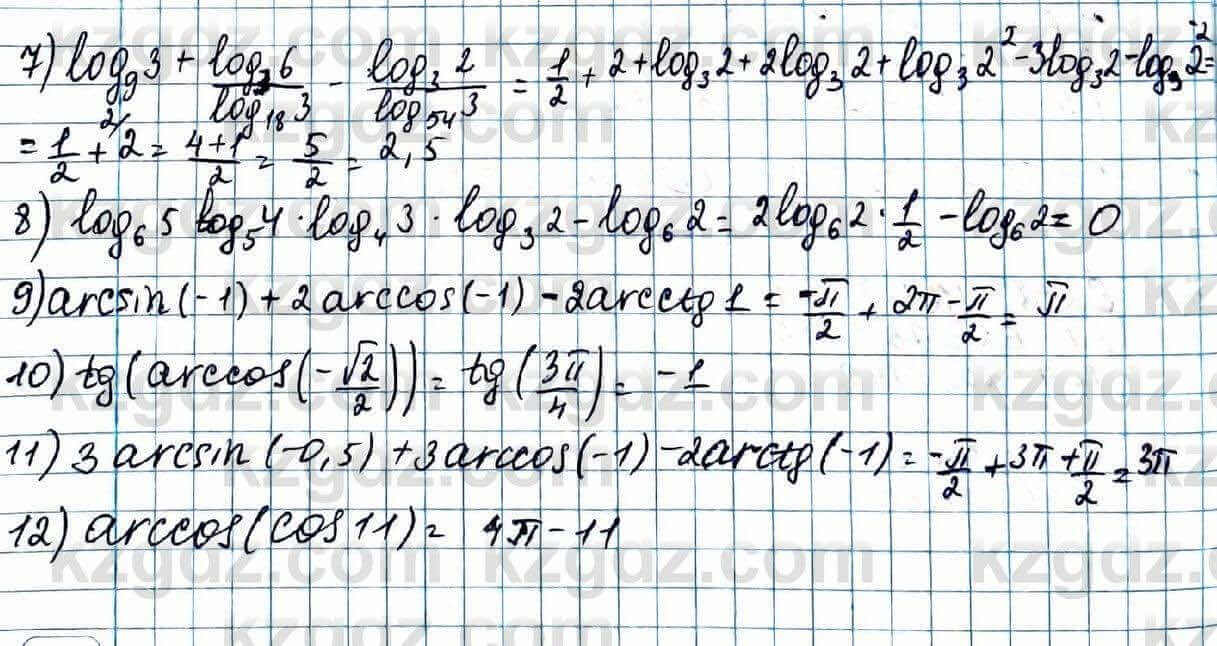 7) log₉3 + log₃6/log₁₈3 - log₃2/log₅₄3 = 1/2 + 2 + log₃2 + 2log₃2 + log₃2² - 3log₃2 - log₃2² =
= 1/2 + 2 = 4+1/2 = 5/2 = 2,5
8) log₆5 log₅4 · log₄3 · log₃2 - log₆2 = 2log₆2 · 1/2 - log₆2 = 0
9) arcsin(-1) + 2arccos(-1) - 2arcctg1 = -π/2 + 2π - π/2 = π
10) tg(arccos(-√2/2)) = tg(3π/4) = -1
11) 3arcsin(-0,5) + 3arccos(-1) - 2arctg(-1) = -π/2 + 3π + π/2 = 3π
12) arccos(cos11) = 4π - 11
kzgdz.com